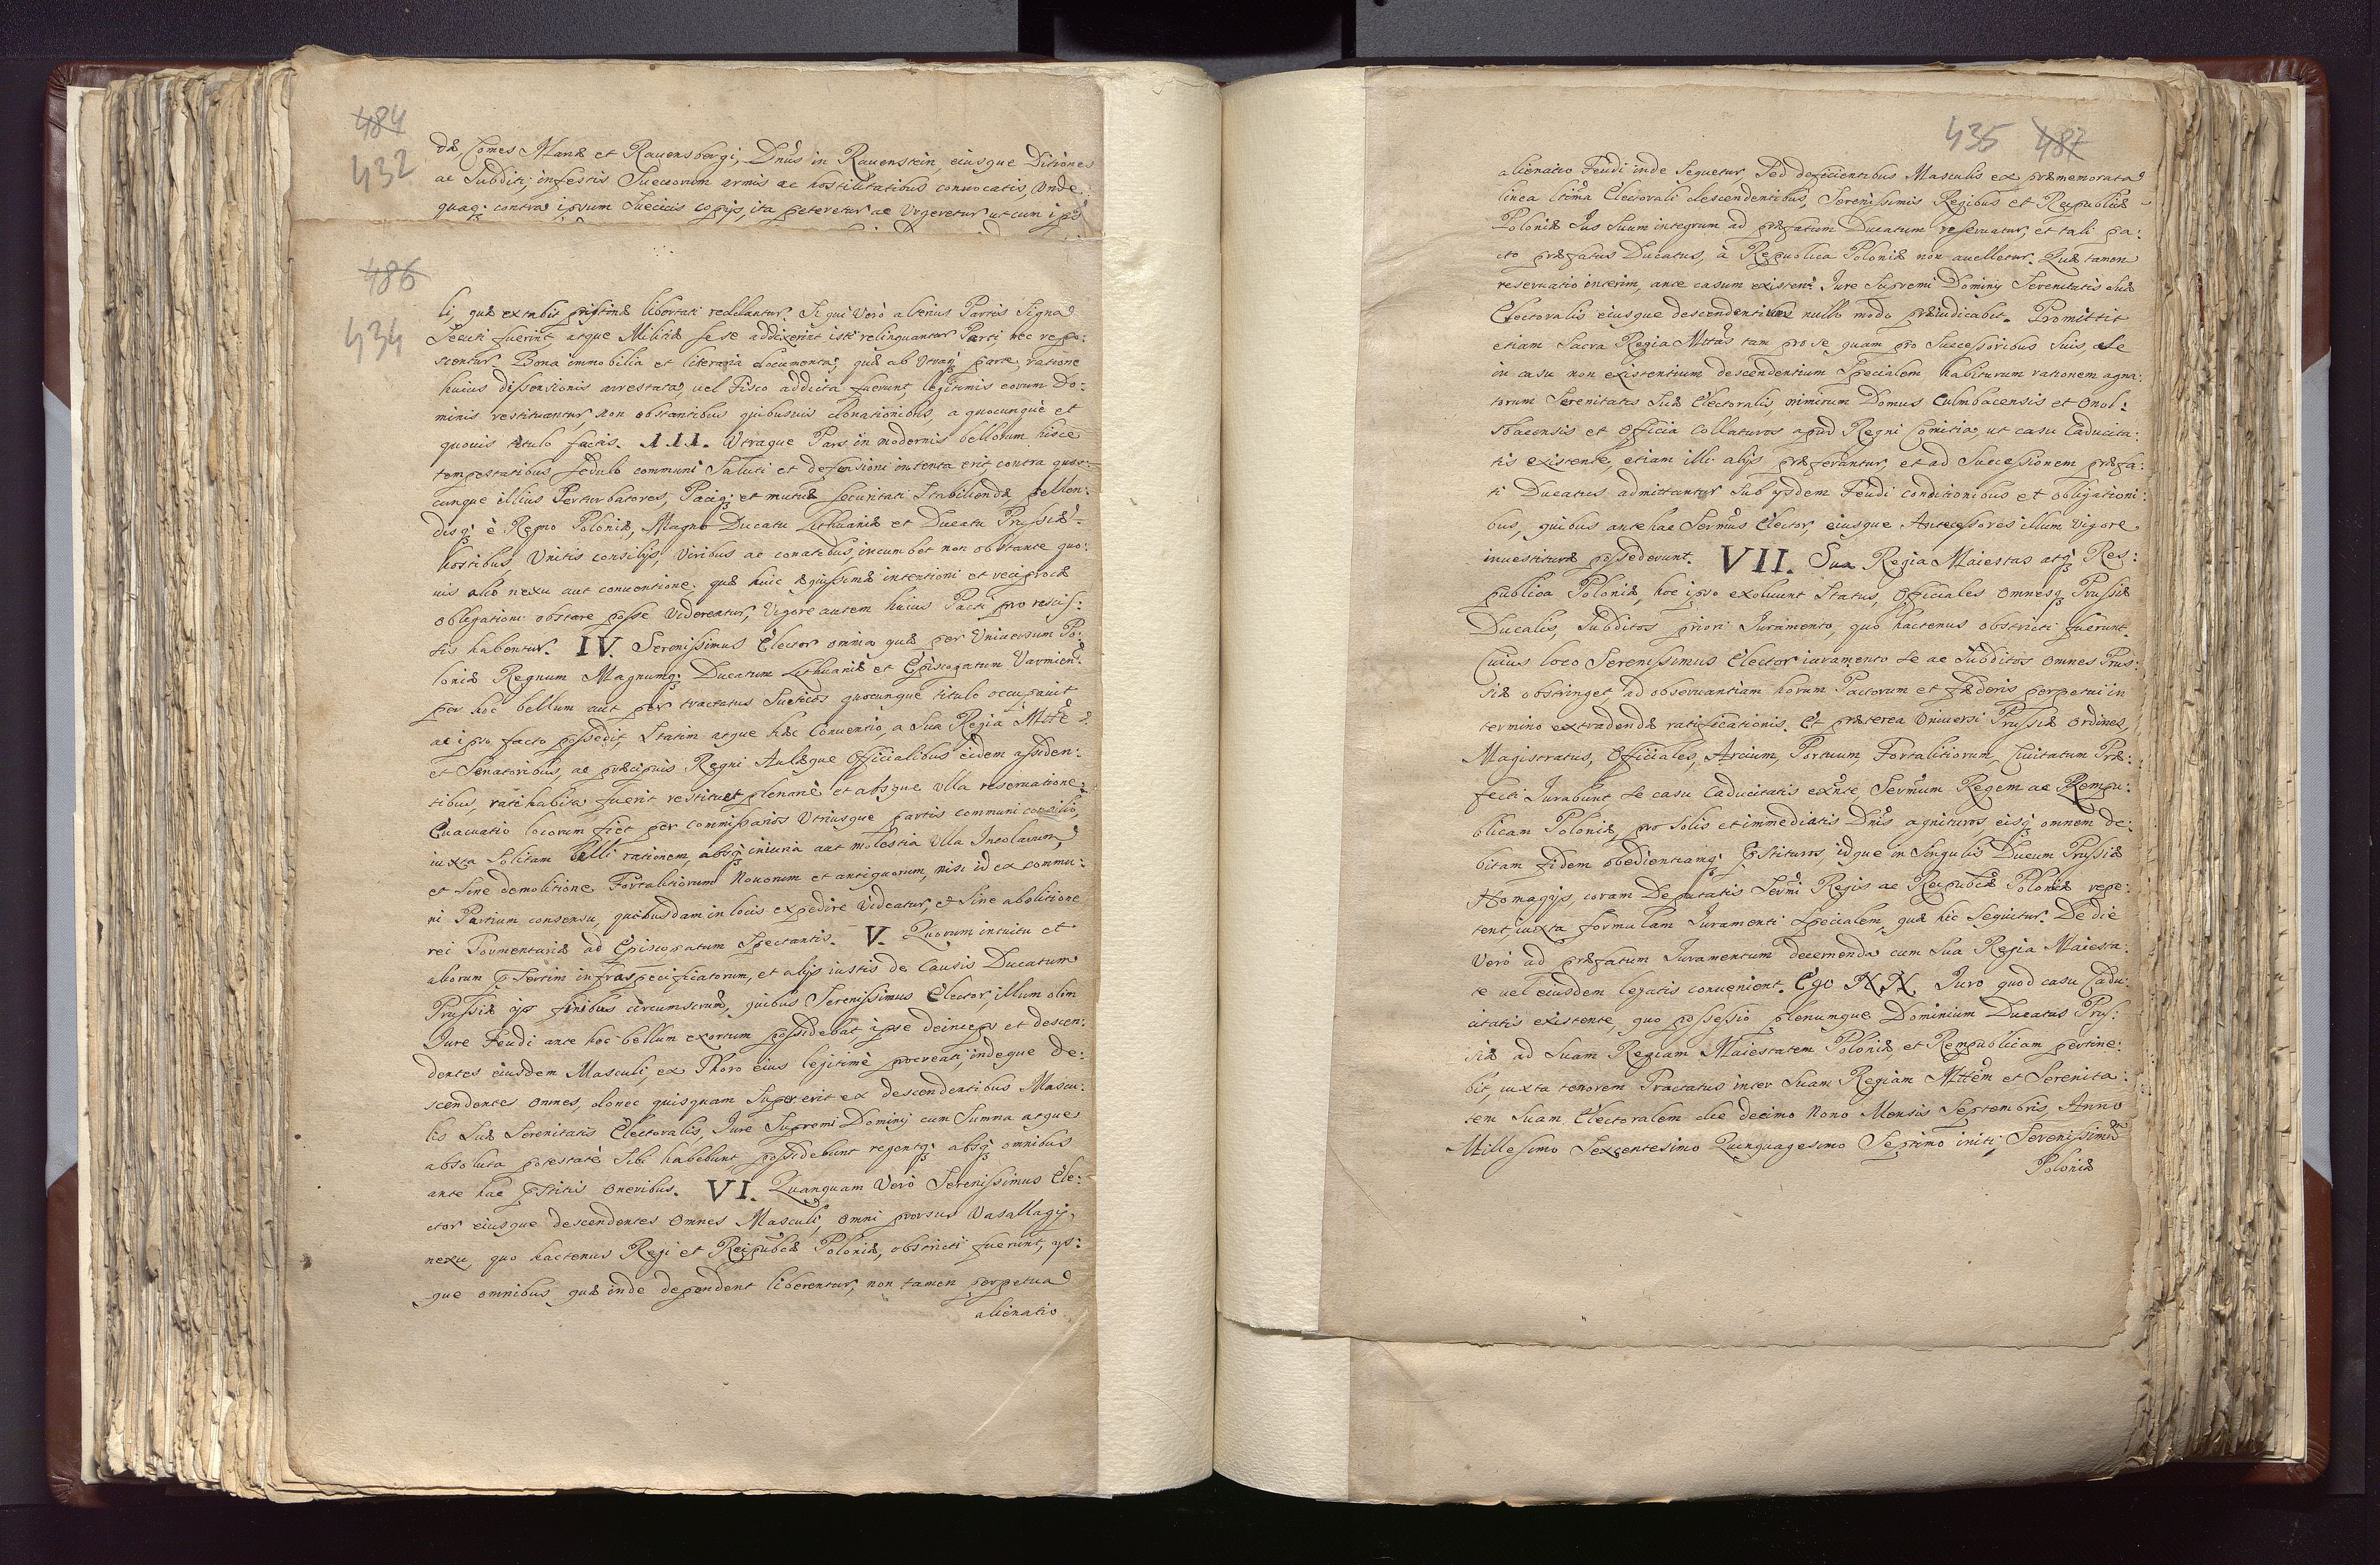 484
432
dæ, Comes Maræ et Rauensbergi, Dnus in Rauenstein, eiusque Ditiones
ac Subditi, infestis Suecorum armis ac hostilitatibus conuocatis, Vnde
quaq; contra ipsum Suecicis copijs, ita peteretur ac Vrgeretur ut cum ipsis
486
434
li, quæ ex nobis pristinæ libertati reddantur. Si qui Verò alterius Partis Signa
Secuti fuerint, atque Militiæ sese addixerint isti relinquantur Parti nec repo:
scentur. Bona immobilia et literaria documenta, quæ ab Vtraq; parte, ratione
huius dissensionis arrestata, uel Fisco addicta fuerunt, legitimis eorum Do:
minis restituantur, non obstantibus quibusuis donationibus, a quocunque et
quouis titulo factis. III. Vtraque Pars in modernis bellorum hisce
tempestatibus sedulo communi Saluti et defensioni intenta erit, contra quos:
cunque illius Perturbatores, Paciq; et mutuæ securitati Stabiliendæ, pellen:
disq; è Regno Poloniæ, Magno Ducatu Lithuaniæ et Ducatu Prussiæ
hostibus, Vnitis consilijs, Viribus ac conatibus, incumbet non obstante quo:
uis alio nexu aut conuentione, quæ huic æquissimæ intentioni et reciprocæ
obligationi obstare posse Viderentur, Vigore autem huius Pacti pro rescis:
sis habentur. IV. Serenissimus Elector omnia quæ per Vniuersum Po:
loniæ Regnum Magnumq; Ducatum Lithuaniæ et Episcopatum Varmien:
per hoc bellum aut per tractatus Sueticos quocunque titulo occupauit
ac ipso facto possedit, Statim atque hæc Conuentio, a Sua Regia Mtte
et Senatoribus, ac præcipuis Regni Aulæque Officialibus eidem assiden:
tibus, ratihabita fuerit restituet plenarie et absque Vlla reseruatione,
Euacuatio locorum fiet per commissarios Vtriusque partis communi consilio,
iuxta Solitam belli rationem, absq; iniuria aut molestia Vlla Incolarum,
et Sine demolitione Fortalitiorum Nouorum et antiquorum, nisi id ex commu:
ni Partium consensu, quibusdam in locis expedire Videatur, et Sine abolitione
rei Tormentariæ ad Episcopatum Spectantis. V. Quorum intuitu et
aliorum pSertim infraspecificatorum, et alijs iustis de Causis Ducatum
Prussiæ ijs finibus circumscrium, quibus Serenissimus Elector, illum olim
Jure Feudi ante hoc bellum exortum possidebat, ipse deinceps et descen:
dentes eiusdem Masculi, ex Thoro eius legitimè procreati, indeque de:
scendentes omnes, donec quisquam Supererit ex descendentibus Mascu:
lis Suæ Serenitatis Electoralis, Jure Supremi Dominij cum Summa atque
absoluta potestate Sibi habebunt possidebunt regentq; absq; omnibus
ante hac pStitis oneribus. VI. Quanquam Verò Serenissimus Ele:
ctor eiusque descendentes omnes Masculi, omni prorsus Vasallagij
nexu, quo hactenus Regi et Reipublcæ Poloniæ, obstricti fuerunt, ijs:
que omnibus quæ inde dependent liberentur, non tamen perpetua
alienatio
435 487
alienatio Feudi inde Sequetur, Sed deficientibus Masculis ex præmemorata
linea ltima Electorali descendentibus, Serenissimis Regibus et Reipublicæ
Poloniæ Jus Suum integrum ad præfatum Ducatum reseruatur, et tali pa:
cto præfatus Ducatus, à Republica Poloniæ non auelletur. Quæ tamen
reseruatio interim, ante casum existen: Jure Supremi Dominij Serenitatis Suæ
Electoralis eiusque descendentibus nullo modo præiudicabit. Promittit
etiam Sacra Regia Mttas tam pro se quam pro Successoribus Suis, Se
in casu non existentium descendentium Specialem habiturum rationem agna:
torum Serenitatis Suæ Electoralis, nimirum Domus Culmbacensis et Onol:
sbacensis et Officia Collaturos apud Regni Comitia ut casu Caducita:
tis existente, etiam illi alijs præferantur, et ad Successionem præfa:
ti Ducatus admittantur Sub ijsdem Feudi conditionibus et obligationi:
bus, quibus ante hac Sermus Elector, eiusque Antecessores illum Vigore
inuestituræ possederunt. VII. Sua Regia Maiestas atq; Res:
publica Poloniæ, hoc ipso exoluunt Status, Officiales omnesq; Prussiæ
Ducalis, Subditos priori Juramento, quo hactenus obstricti fuerunt.
Cuius loco Serenissimus Elector iuramento Se ac Subditos omnes Prus:
siæ obstringet ad obseruantiam horum Pactorum et fæderis perpetui in
termino extradendæ ratificationis. Et præterea Vniuersi Prussiæ Ordines,
Magistratus, Officiales, Arcium, Portuum, Fortalitiorum, Ciuitatum Præ:
fecti Jurabunt Se casu Caducitatis exnte Sermum Regem ac Rempu:
blicam Poloniæ, pro Solis et immediatis Dnis agnituros, eisq; omnem de:
bitam fidem obedientiamq; pStituros, idque in Singulis Ducum Prussiæ
Homagijs, coram Deputatis Sermi Regis ac Reipublcæ Poloniæ repe:
tent, iuxta formulam Juramenti Specialem, quæ hic Sequitur. De die
Verò ad præfatum Juramentum decernenda cum Sua Regia Maiesta:
te uel eiusdem legatis conuenient. Ego N.N. Juro quod casu Cadu:
citatis existente, quo possessio plenumque Dominium Ducatus Prus:
siæ ad Suam Regiam Maiestatem Poloniæ et Rempublicam pertine:
bit, iuxta tenorem Tractatus inter Suam Regiam Mttem et Serenita:
tem Suam Electoralem die decimo nono Mensis Septembris, Anno
Millesimo Sexcentesimo Quinquagesimo Septimo initi, Serenissimum
Poloniæ